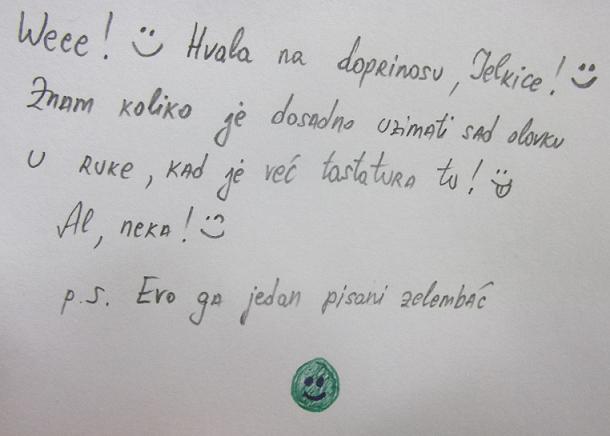 Weee! Hvala na doprinosu, Jelkice!
Znam koliko je dosadno uzimati sad olovku
u ruke, kad je već tastatura tu!
Al, neka!
p.s. Evo ga jedan pisani zelembać